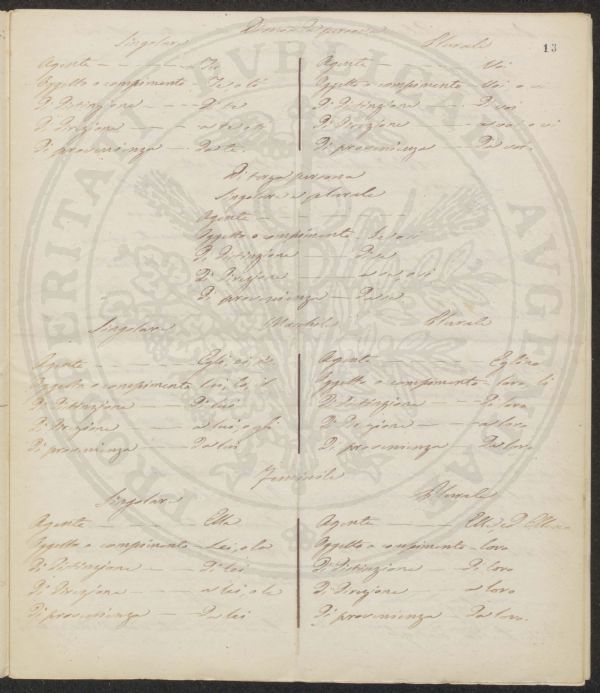 13
Singolare
Plurale
Agente - - - - - Tu
Oggetto o compimento - Te o ti
Di Distinzione - - - Di te
Di Direzione - - - a te o ti
Di provenienza - - Da te.
Agente - - - - - Voi
Oggetto o compimento - Voi o vi
Di Distinzione - - - Di voi
Di Direzione - - - a voi o vi
Di provenienza - - Da voi.
Di terza persona
Singolare e plurale
Agente - - - - -
Oggetto o compimento - Se o si
Di Distinzione - - - Di se
Di Direzione - - - a se o si
Di provenienza - Da se.
Maschile
Singolare
Plurale
Agente - - - - - Egli, ei, e'
Oggetto o compimento - lui, lo, il
Di Distinzione - - - Di lui
Di Direzione - - - a lui, o gli
Di provenienza - - Da lui
Agente - - - - - Eglino
Oggetto o compimento - loro, li
Di Distinzione - - - Di loro
Di Direzione - - - a loro
Di provenienza - - Da loro.
Feminile
Singolare
Plurale
Agente - - - - - Ella
Oggetto o compimento - Lei, o la
Di Distinzione - - - Di lei
Di Direzione - - - a lei, o le
Di provenienza - - - Da lei
Agente - - - - - Elle,
Oggetto o compimento - loro
Di Distinzione - - - Di loro
Di Direzione - - - a loro
Di provenienza - - Da loro.
PROSPERITATI PVBLICAE AVGENDAE